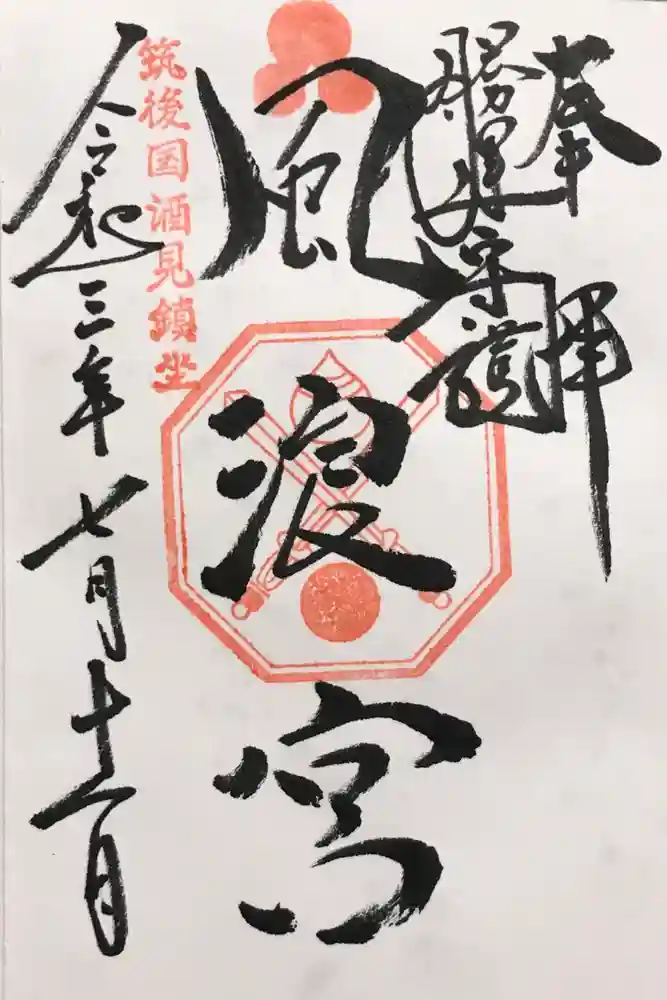 奉拝
勝運守護
風浪宮
筑後国酒見鎮坐
令和三年七月十一日